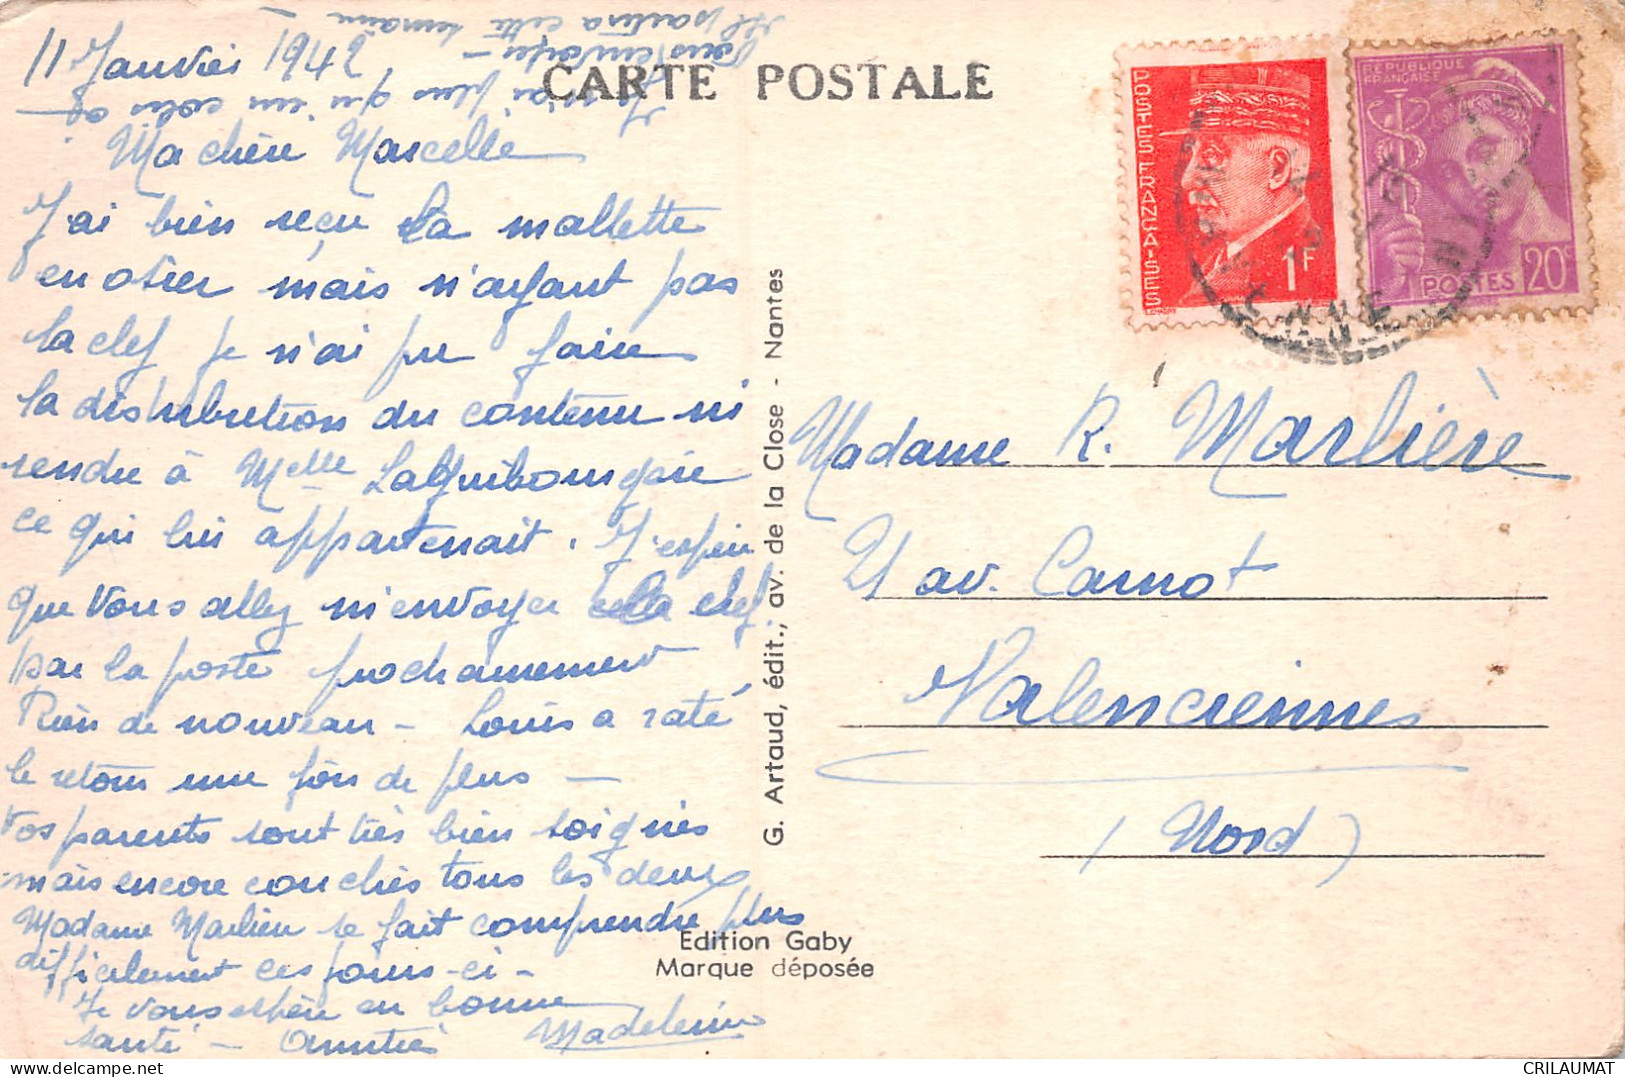 11 Janvier 1942
Ma chère Marcelle
J'ai bien reçu la mallette
en osier mais n'ayant pas
la clef je n'ai pu faire
la distribution du contenu ni
rendre à Melle
ce qui lui appartenait. J'espère
que vous allez m'envoyer la clef
par la poste prochainement
Rien de nouveau - Louis a raté
le retour une fois de plus -
Vos parents sont très bien soignés
mais encore couchés tous les deux
Madame Marlière se fait comprendre plus
difficilement ces jours-ci -
Je vous espère en bonne
santé - Amitiés Madeleine
Je n'ai plus qu'un colis à
vous envoyer -
Il partira cette semaine
CARTE POSTALE
G. Artaud, édit., av. de la Close - Nantes
Edition Gaby
Marque déposée
POSTES FRANÇAISES
1F
REPUBLIQUE
FRANÇAISE
POSTES 20c
Madame R. Marlière
21 av. Carnot
Valenciennes
(Nord)
CRILAUMAT